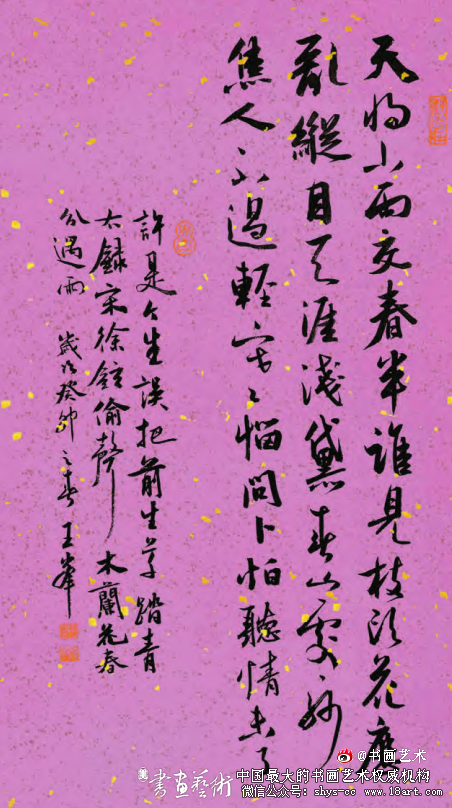 天将小雨交春半誰見枝头花歷
亂縱目天涯淺黛春山處々紗
焦人不過輕寒惱問卜怕聽情未了
許是今生誤把前生草踏青
右録宋徐鉉偷聲木蘭花春
分遇雨 歲次癸卯之春王峰
@书画艺术
書畫藝術
中国最大的书画艺术权威机构
微信公众号:shys-cc www.18art.com